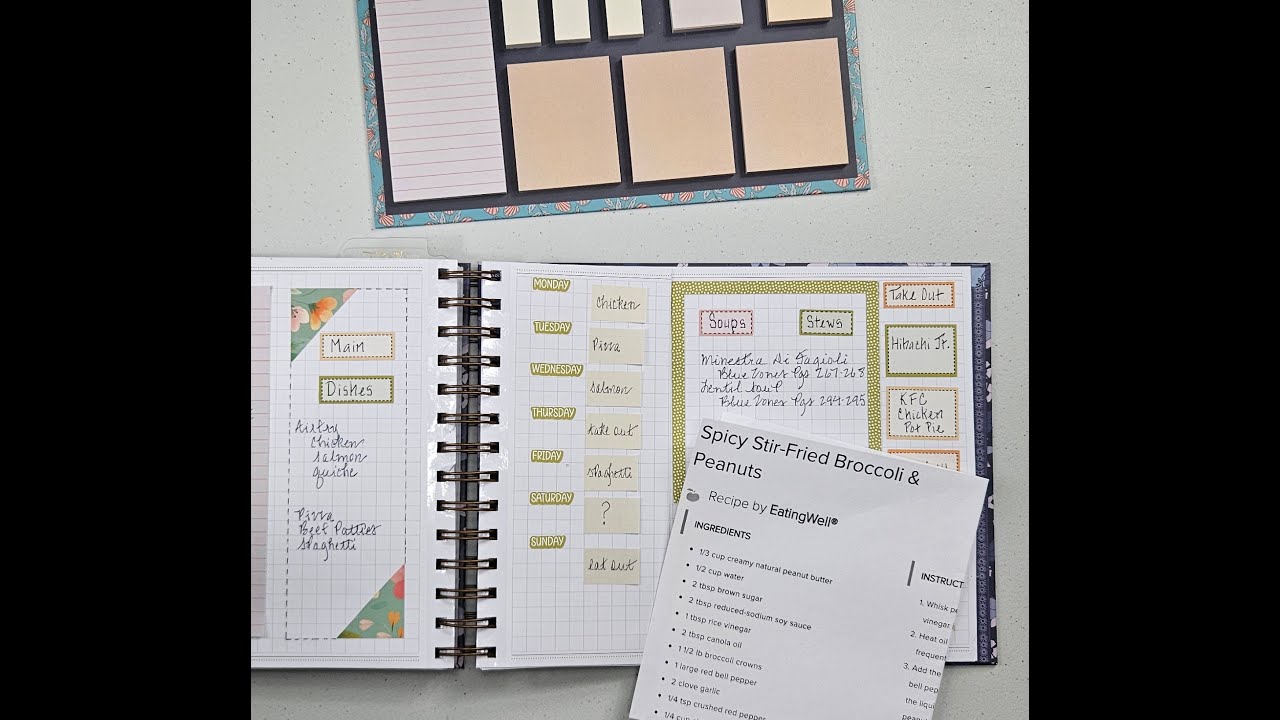 Main
Dishes
Airfry
Chicken
Salmon
Quiche
Pizza
Beef Patties
Spaghetti
MONDAY
Chicken
TUESDAY
Pizza
WEDNESDAY
Salmon
THURSDAY
take out
FRIDAY
Spaghetti
SATURDAY
?
SUNDAY
eat out
Soups
Stews
Minestra Di Fagioli
Blue Zones Pgs 267-268
Lentil Soup
Blue Zones Pgs 294-295
Take Out
Hibachi Jr.
KFC
Chicken
Pot Pie
Spicy Stir-Fried Broccoli &
Peanuts
Recipe by EatingWell®
INGREDIENTS
• 1/3 cup creamy natural peanut butter
• 1/2 cup water
• 2 tbsp brown sugar
• 2 tbsp reduced-sodium soy sauce
• 1 tbsp rice vinegar
• 2 tbsp canola oil
• 1 1/2 lb broccoli crowns
• 1 large red bell pepper
• 2 clove garlic
• 1/4 tsp crushed red pepper
• 1/4 cup
INSTRUCT
1. Whisk pe
vinegar
2. Heat oil
frequent
3. Add the
bell pep
the liqui
peanu